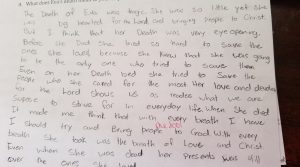 The Death of Eva was tragic. She was so little yet she
big hearted for the Lord and bringing People to Christ.
But I think that her Death was very eye opening.
Before she Died she tried so hard to save the
she because she knew that she was going
to be the only one who tried to save them.
Even on her Death bed she tried to Save the
People who she cared for the most. Her love and devotion
for the Lord shows us as readers what we are
Suppose to strive for in everyday life. When she died
it made me think that with every breath I have
I should try and Bring People to God. With every
breath she took was the breath of Love and Christ
Even when she was dead her presents was still
over the ones she loved